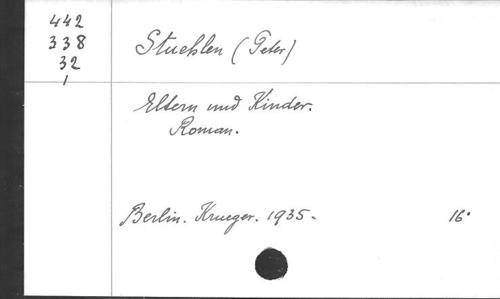 442
338
32
1
Stuehlen (Peter)
Eltern und Kinder.
Roman.
Berlin. Krueger. 1935.
16°